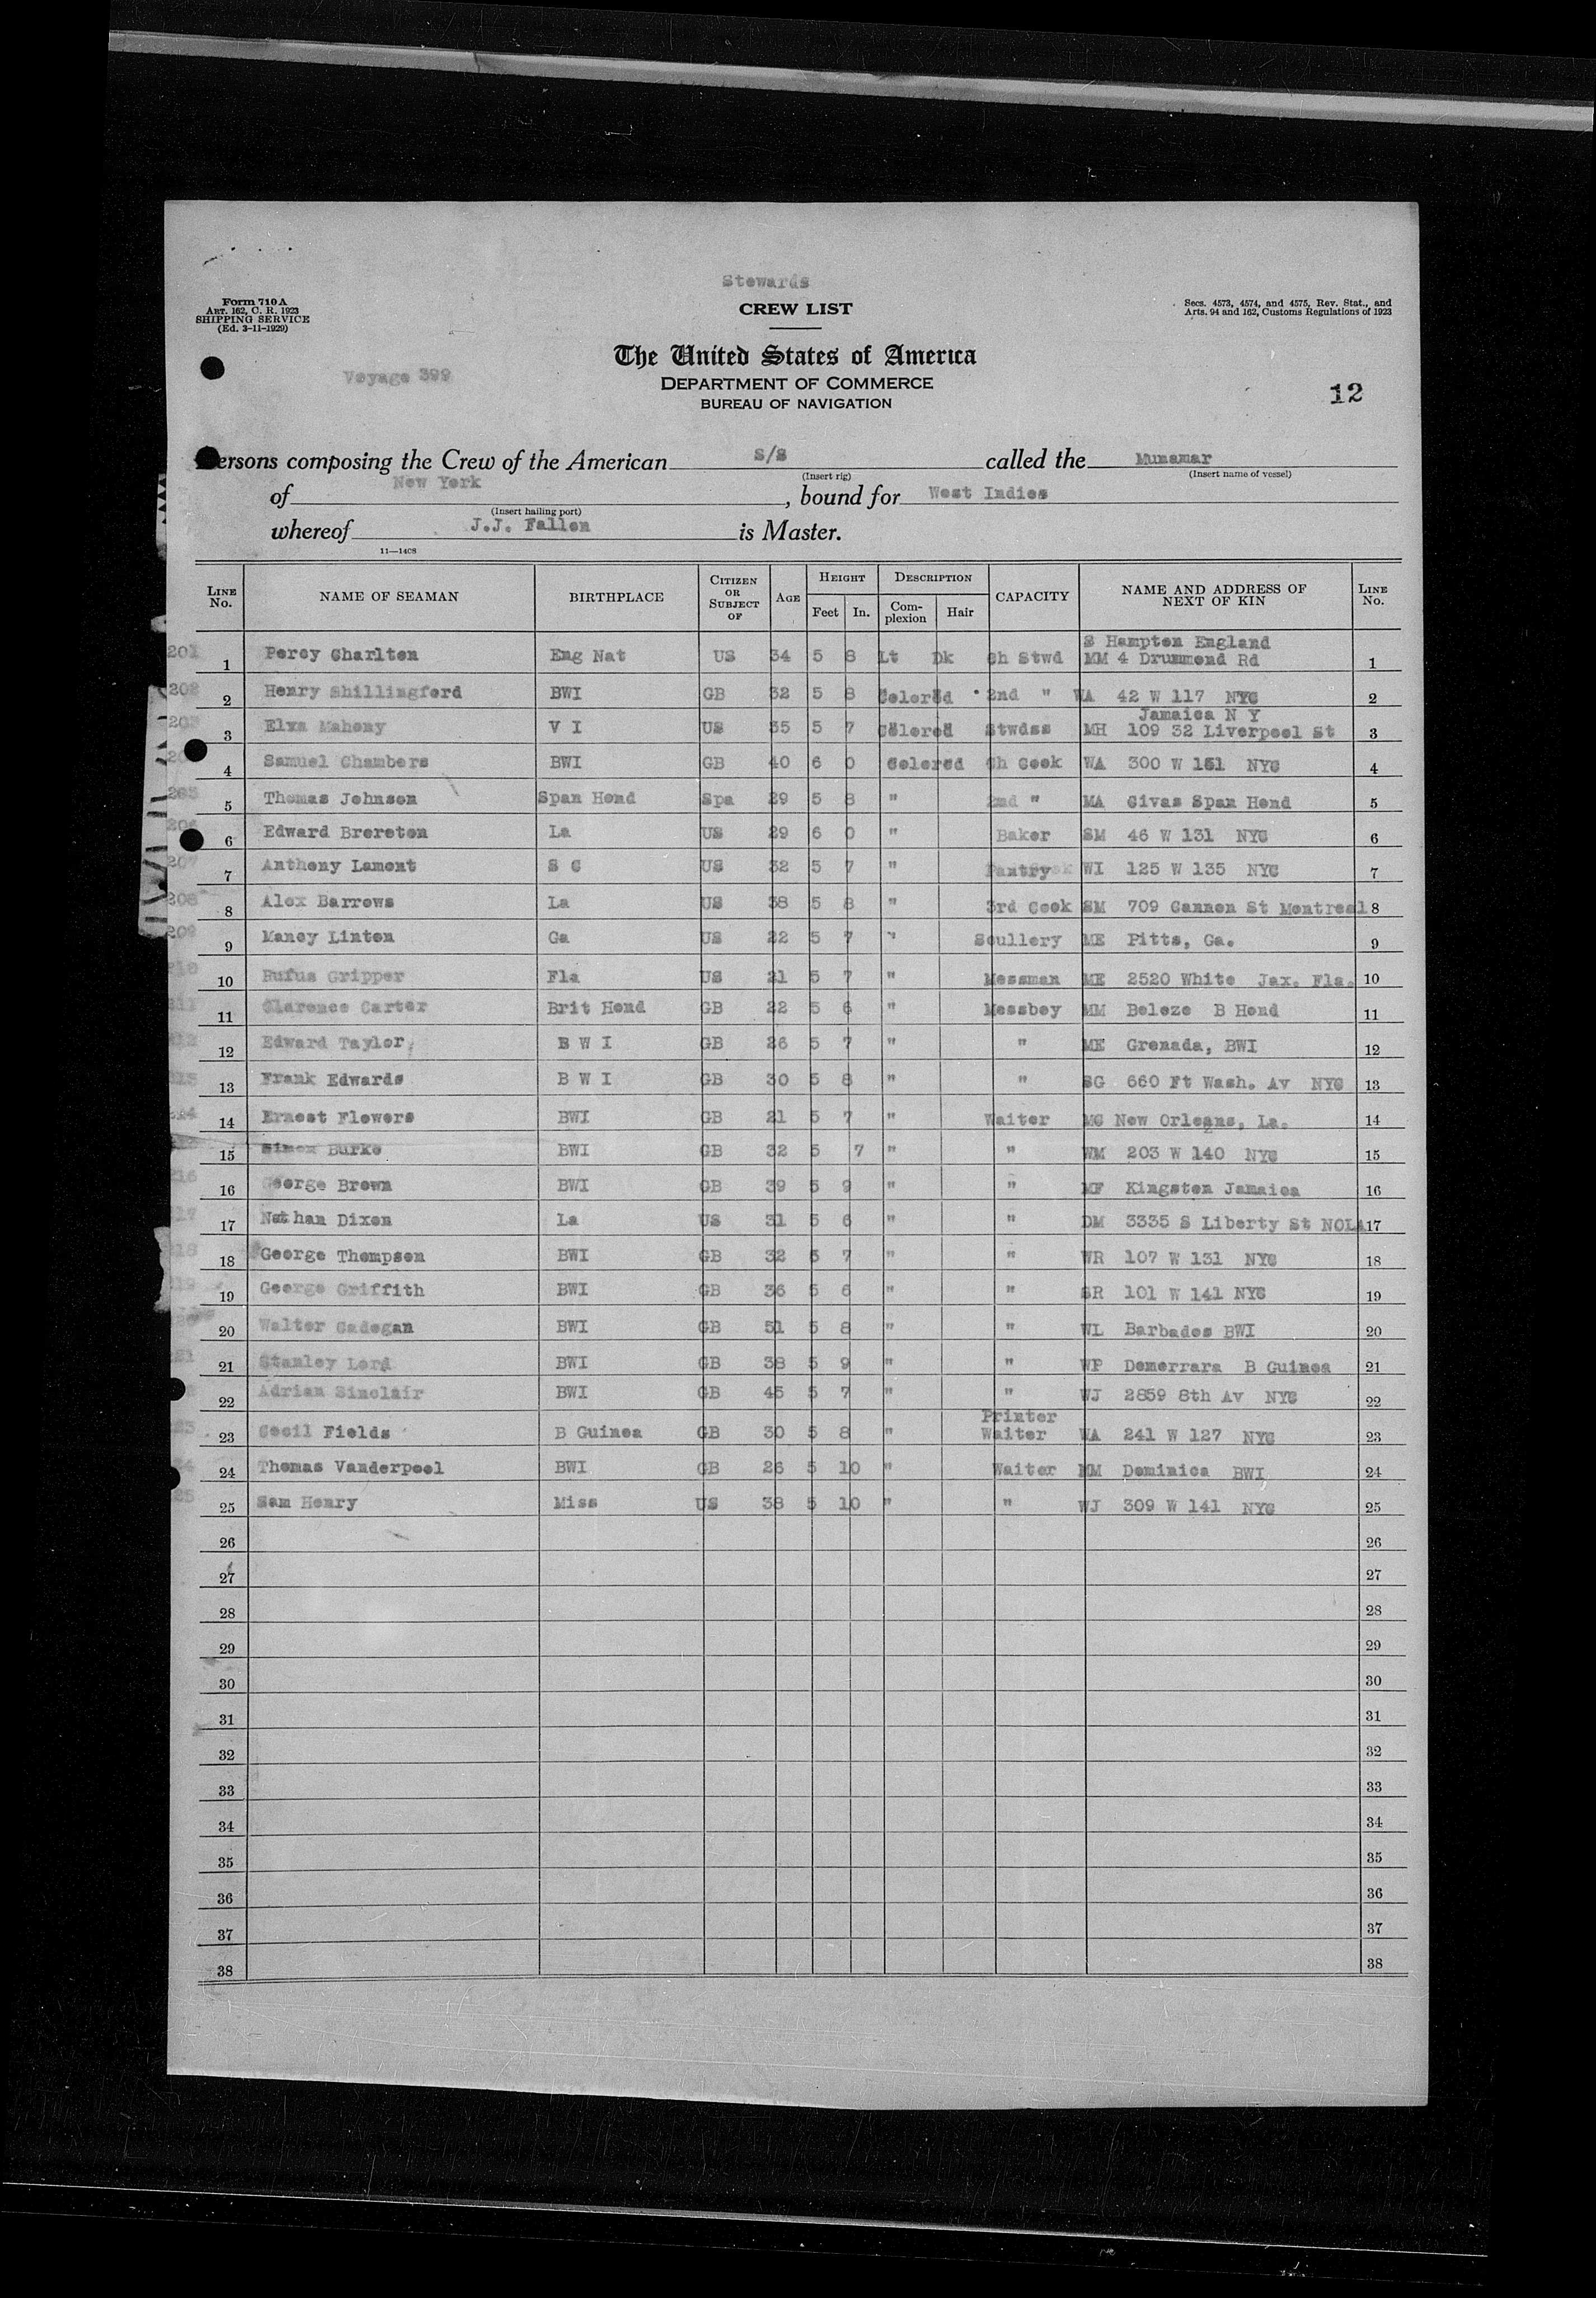 Stewards
Form 710 A
ART. 162, C. R. 1923
SHIPPING SERVICE
(Ed. 3-11-1929)
CREW LIST
Secs. 4573, 4574, and 4575, Rev. Stat., and
Arts. 94 and 162, Customs Regulations of 1923
The United States of America
Voyage 399
DEPARTMENT OF COMMERCE
BUREAU OF NAVIGATION
12
Persons composing the Crew of the American S/S called the Munamar
(Insert rig) (Insert name of vessel)
of New York, bound for West Indies
(Insert hailing port)
whereof J.J. Fallon is Master.
11—1408
LINE No. NAME OF SEAMAN BIRTHPLACE CITIZEN OR SUBJECT OF AGE HEIGHT Feet In. DESCRIPTION Complexion Hair CAPACITY NAME AND ADDRESS OF NEXT OF KIN LINE No.
S Hampton England
201 1 Percy Charlton Eng Nat US 34 5 8 Lt Dk Ch Stwd MM 4 Drummond Rd 1
202 2 Henry Shillingford BWI GB 32 5 8 Colored 2nd " WA 42 W 117 NYC 2
Jamaica N Y
203 3 Elva Mahony V I US 35 5 7 Colored Stwdss MH 109 32 Liverpool St 3
4 Samuel Chambers BWI GB 40 6 0 Colored Ch Cook WA 300 W 151 NYC 4
205 5 Thomas Johnson Span Hond Spa 29 5 8 " 2nd " MA Civas Span Hond 5
206 6 Edward Brereton La US 29 6 0 " Baker SM 46 W 131 NYC 6
207 7 Anthony Lamont S C US 32 5 7 " Pantry WI 125 W 135 NYC 7
208 8 Alex Barrows La US 38 5 8 " 3rd Cook SM 709 Cannon St Montreal 8
209 9 Maney Linton Ga US 22 5 7 " Scullery ME Pitts, Ga. 9
210 10 Rufus Gripper Fla US 21 5 7 " Messman ME 2520 White Jax. Fla. 10
211 11 Clarence Carter Brit Hond GB 22 5 6 " Messboy MM Beleze B Hond 11
212 12 Edward Taylor B W I GB 26 5 7 " " ME Grenada, BWI 12
213 13 Frank Edwards B W I GB 30 5 8 " " SG 660 Ft Wash. Av NYC 13
214 14 Ernest Flowers BWI GB 21 5 7 " Waiter MC New Orleans, La. 14
15 Simon Burke BWI GB 32 5 7 " " WM 203 W 140 NYC 15
216 16 George Brown BWI GB 39 5 9 " " MF Kingston Jamaica 16
217 17 Nathan Dixon La US 31 5 6 " " DM 3335 S Liberty St NOLA 17
218 18 George Thompson BWI GB 32 5 7 " " WR 107 W 131 NYC 18
219 19 George Griffith BWI GB 36 5 6 " " SR 101 W 141 NYC 19
20 Walter Cadogan BWI GB 51 5 8 " " WL Barbados BWI 20
221 21 Stanley Lord BWI GB 38 5 9 " " WP Demerrara B Guinea 21
22 Adrian Sinclair BWI GB 45 5 7 " " WJ 2859 8th Av NYC 22
Printer
223 23 Cecil Fields B Guinea GB 30 5 8 " Waiter WA 241 W 127 NYC 23
24 Thomas Vanderpool BWI GB 26 5 10 " Waiter MM Dominica BWI 24
25 Sam Henry Miss US 38 5 10 " " WJ 309 W 141 NYC 25
26 26
27 27
28 28
29 29
30 30
31 31
32 32
33 33
34 34
35 35
36 36
37 37
38 38